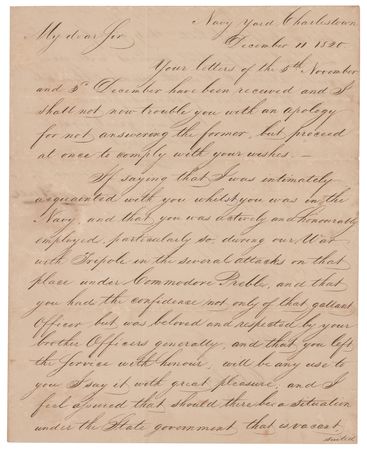 Navy Yard Charlestown
December 11 1820
My dear Sir
Your letters of the 5th November
and 5th December have been received and I
shall not now trouble you with an apology
for not answering the former, but proceed
at once to comply with your wishes. —
If saying that I was intimately
acquainted with you whilst you was in the
Navy, and that you was actively and honourably
employed, particularly so, during our War
with Tripole in the several attacks on that
place under Commodore Preble, and that
you had the confidence not only of that gallant
Officer but was beloved and respected by your
brother Officers generally, and that you left
the Service with honour, will be any use to
you I say it with great pleasure, and I
feel assured that should there be a situation
under the State government that is vacant
suited